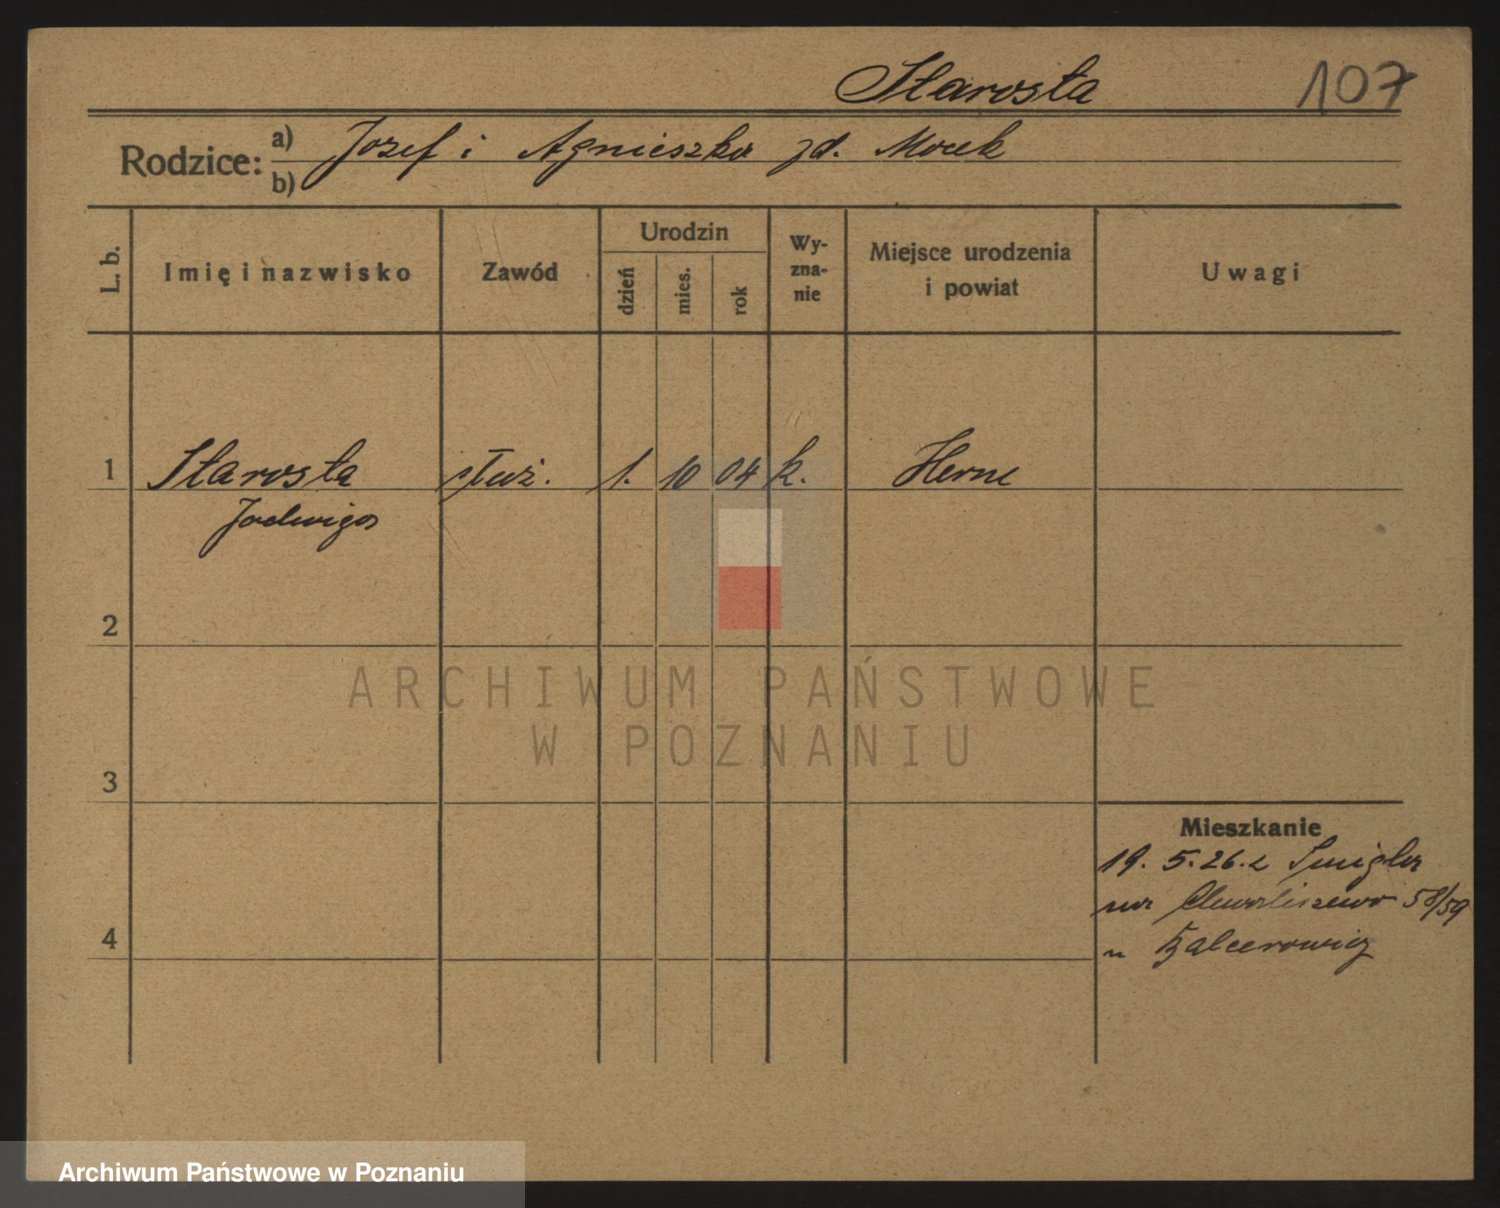 Starosta 107
Rodzice: a) Józef i Agnieszka zd. Mocek
b)
L. b. Imię i nazwisko Zawód Urodzin dzień mies. rok Wy-zna-nie Miejsce urodzenia i powiat Uwagi
1 Starosta służ. 1. 10 04 k. Herne
Jadwiga
2
3
4
Mieszkanie
19. 5. 26. z Śmigla
na Chwaliszewo 58/59
u Balcerowicz
ARCHIWUM PAŃSTWOWE
W POZNANIU
Archiwum Państwowe w Poznaniu